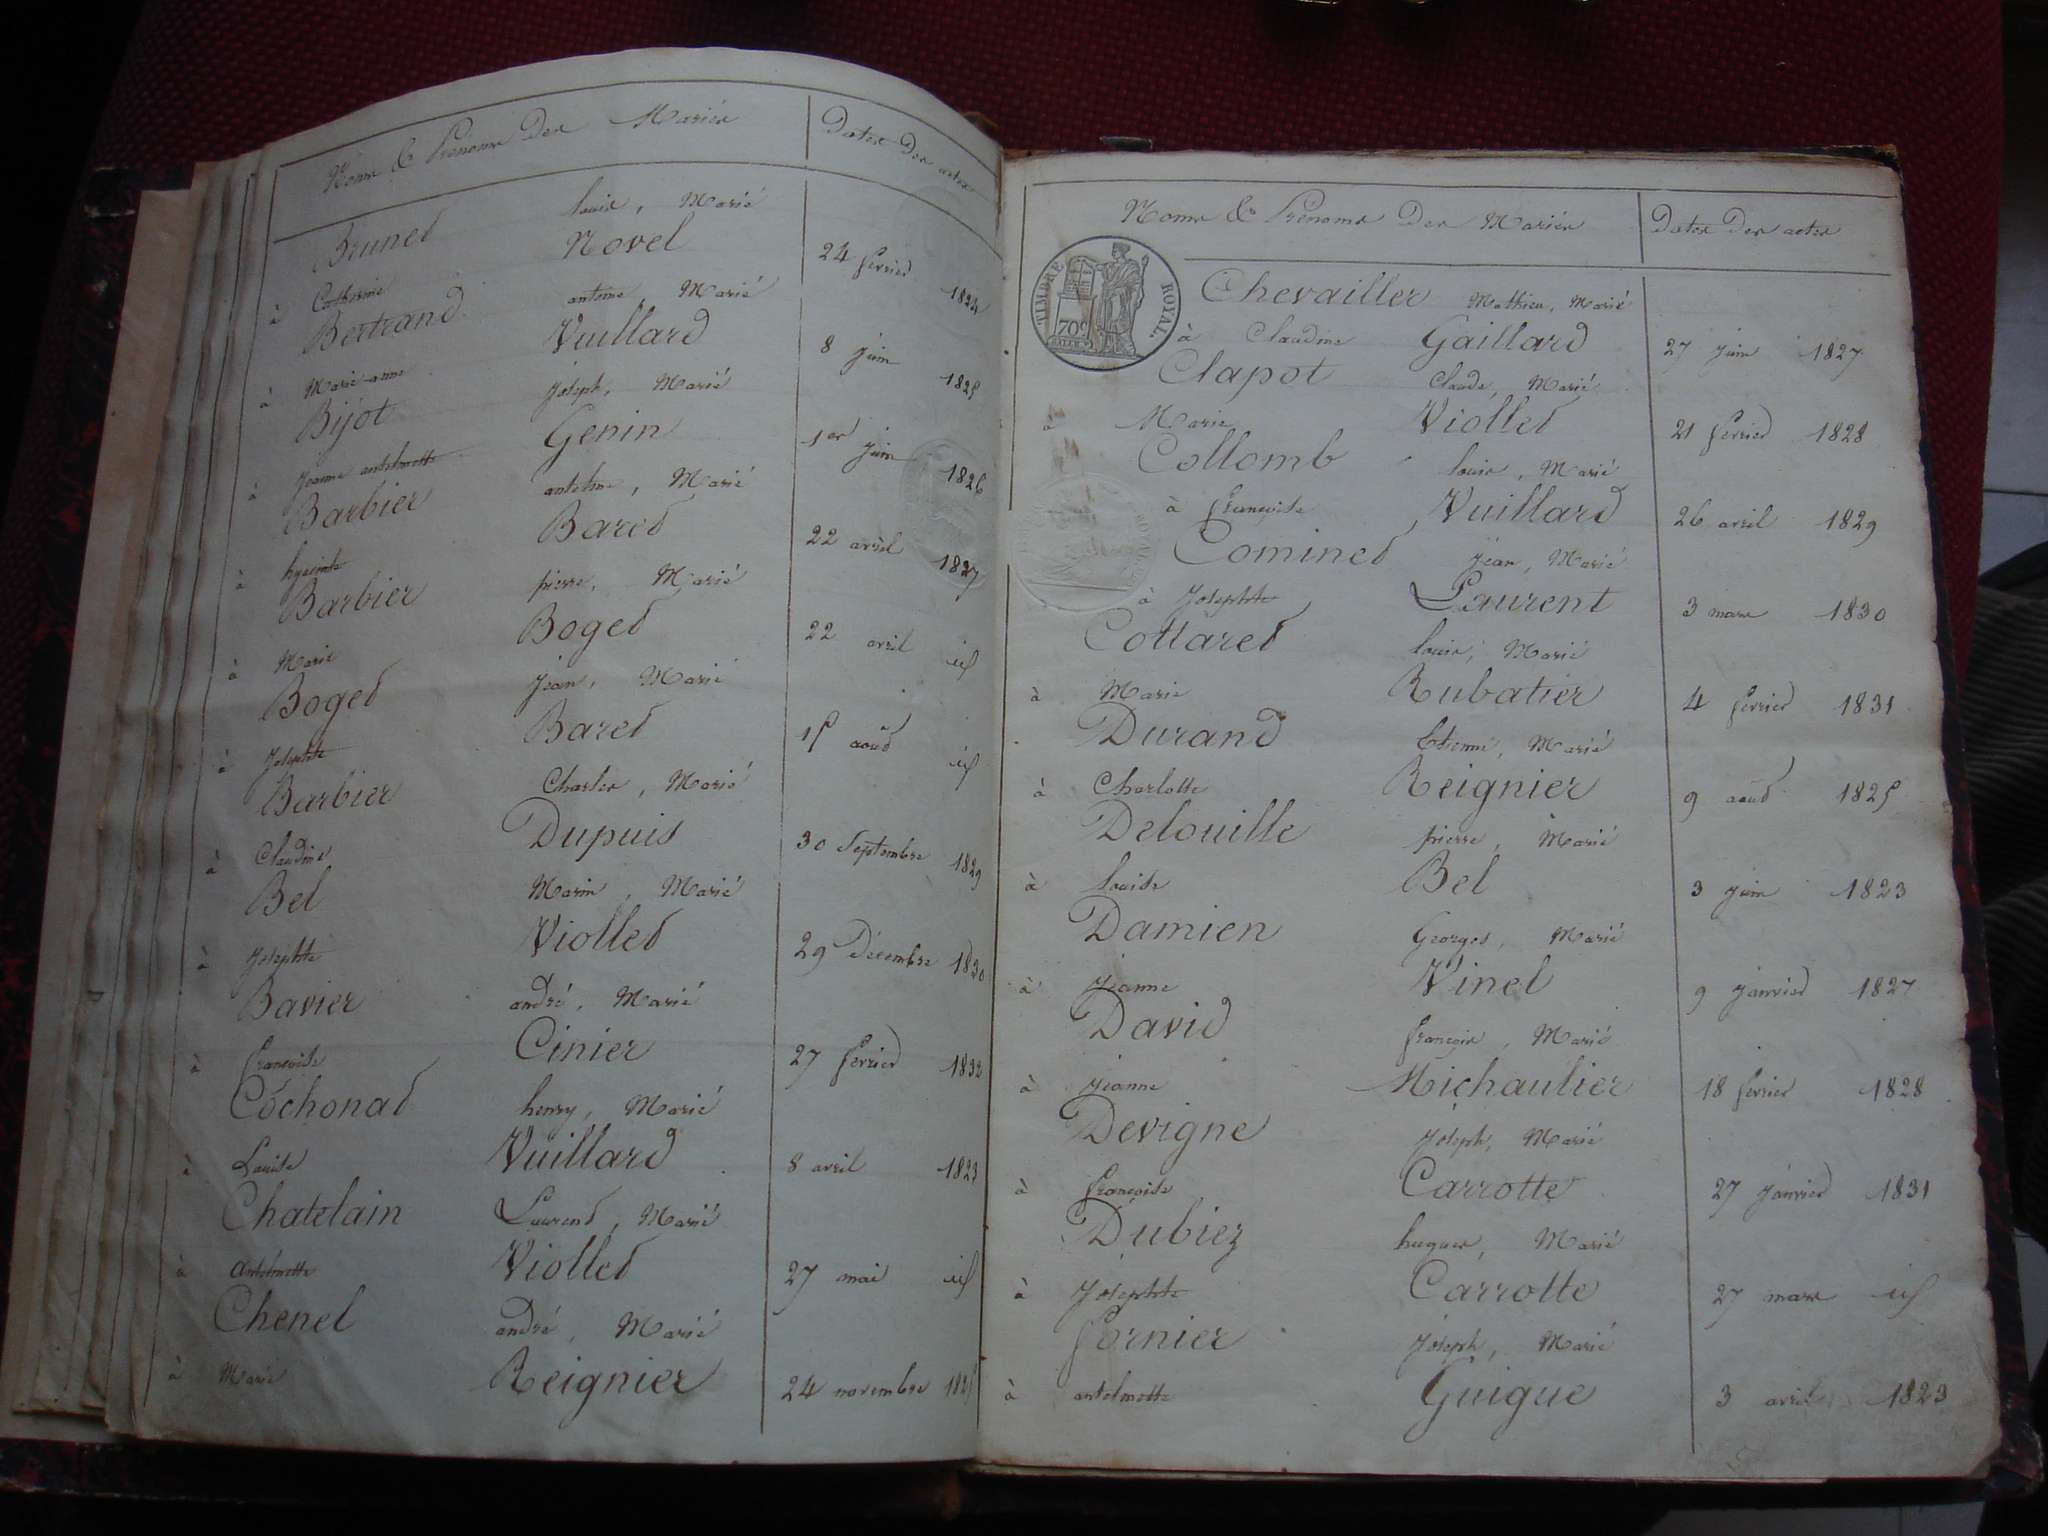 Noms & Prénoms Des Mariés
Dates Des actes
Brunet louis, Marié
à Catherine Novel 24 fevrier 1824
Bertrand antoine Marié
à Marie-anne Vuillard 8 juin 1825
Bijot joseph, Marié
à jeanne antelmette Genin 1er juin 1826
Barbier antelme, Marié
à hyacinte Baret 22 avril 1827
Barbier pierre, Marié
à Marie Boget 22 avril id
Boget jean, Marié
à josephte Baret 15 août id
Barbier Charles, Marié
à Claudine Dupuis 30 Septembre 1829
Bel Marin, Marié
à josephte Viollet 29 Décembre 1830
Bavier andré, Marié
à françoise Cinier 27 fevrier 1832
Cochonat henry, Marié
à Louise Vuillard 8 avril 1823
Chatelain Laurent, Marié
à antelmette Viollet 27 mai id
Chenel andré, Marié
à Marie Reignier 24 novembre 1825
Noms & Prénoms Des Mariés
Dates Des actes
TIMBRE ROYAL.
70c
Chevailler Mathieu, Marié
à Claudine Gaillard 27 juin 1827
Clapot Claude, Marié
à Marie Viollet 21 fevrier 1828
Collomb louis, Marié
à françoise Vuillard 26 avril 1829
Cominet jean, Marié
à josephte Laurent 3 mars 1830
Cottaret louis, Marié
à Marie Rubatier 4 fevrier 1831
Durand Etienne, Marié
à Charlotte Reignier 9 août 1825
Delouille pierre, Marié
à louise Bel 3 juin 1823
Damien Georges, Marié
à jeanne Vinel 9 janvier 1827
David françois, Marié
à jeanne Michaulier 18 fevrier 1828
Devigne joseph, Marié
à françoise Carrotte 27 janvier 1831
Dubiez hugues, Marié
à josephte Carrotte 27 mars id
fornier joseph, Marié
à antelmette Guigue 3 avril 1823